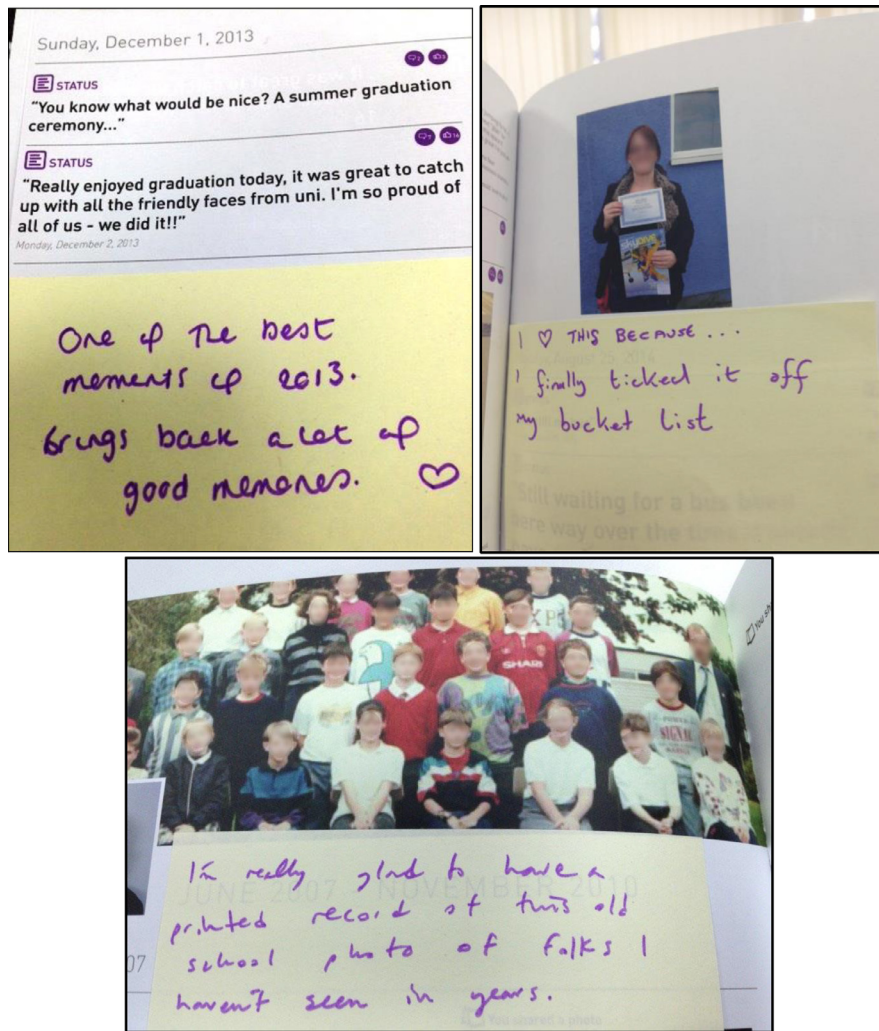 Sunday, December 1, 2013
STATUS
"You know what would be nice? A summer graduation
ceremony..."
STATUS
"Really enjoyed graduation today, it was great to catch
up with all the friendly faces from uni. I'm so proud of
all of us - we did it!!"
Monday, December 2, 2013
One of the best
moments of 2013.
Brings back a lot of
good memories. ♡
skydive
I ♡ THIS BECAUSE...
I finally ticked it off
my bucket list
August 25, 2014
Still waiting for a bus
way over the
SHARP
SIGNAL
You sh
I'm really glad to have a
JUNE 2007 - NOVEMBER 2010
printed record of this old
school photo of folks I
07
haven't seen in years.
You shared a photo